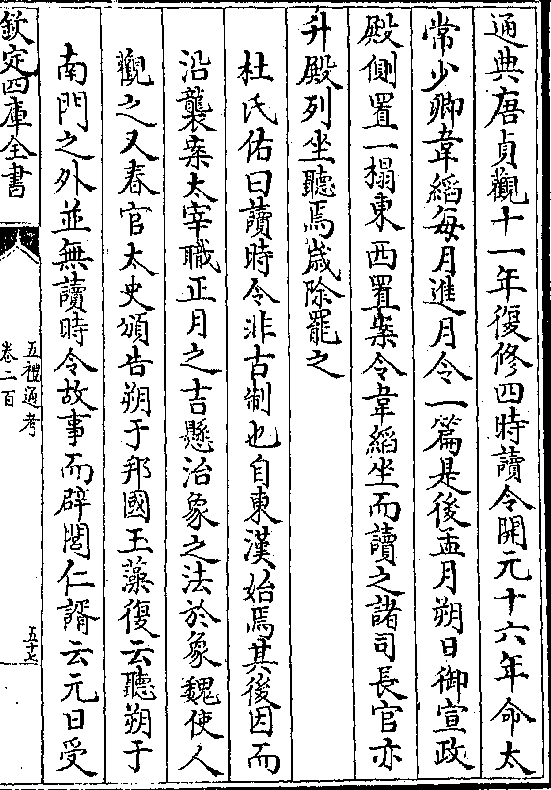 通典唐貞觀十一年復修四時讀令開元十六年命太
常少卿韋縚每月進月令一篇是後孟月朔日御宣政
殿側置一榻東西置案令韋縚坐而讀之諸司長官亦
升殿列坐聽焉歲除罷之
杜氏佑曰讀時令非古制也自東漢始焉其後因而
沿襲案太宰職正月之吉懸治象之法於象魏使人
觀之又春官太史頒告朔于邦國玉藻復云聽朔于
南門之外並無讀時令故事而辟閭仁諝云元日受
欽定四庫全書
五禮通考
卷二百
五十七